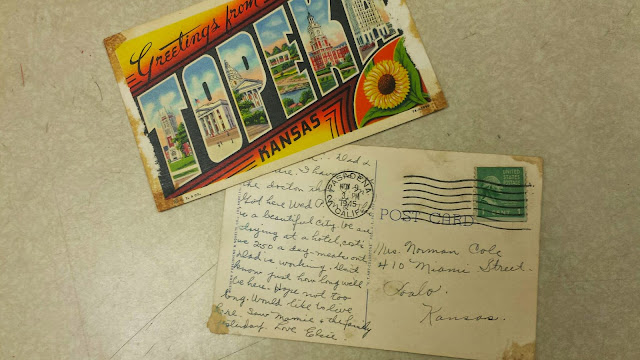 Greetings from
TOPEKA
KANSAS
Dad &
I have
the doctor
God here Wed P.
is a beautiful city. We are
staying at a hotel, costs
us 2.50 a day-meals out.
Dad is working. Don't
know just how long we'll
be here. Hope not too
long. Would like to live
here. Saw Mamie & the family
Sunday. Love Elsie
PASADENA
NOV 9
PM
1945
CALIF.
UNITED STATES
POST CARD
Mrs. Norman Cole
410 Miami Street.
Kansas.